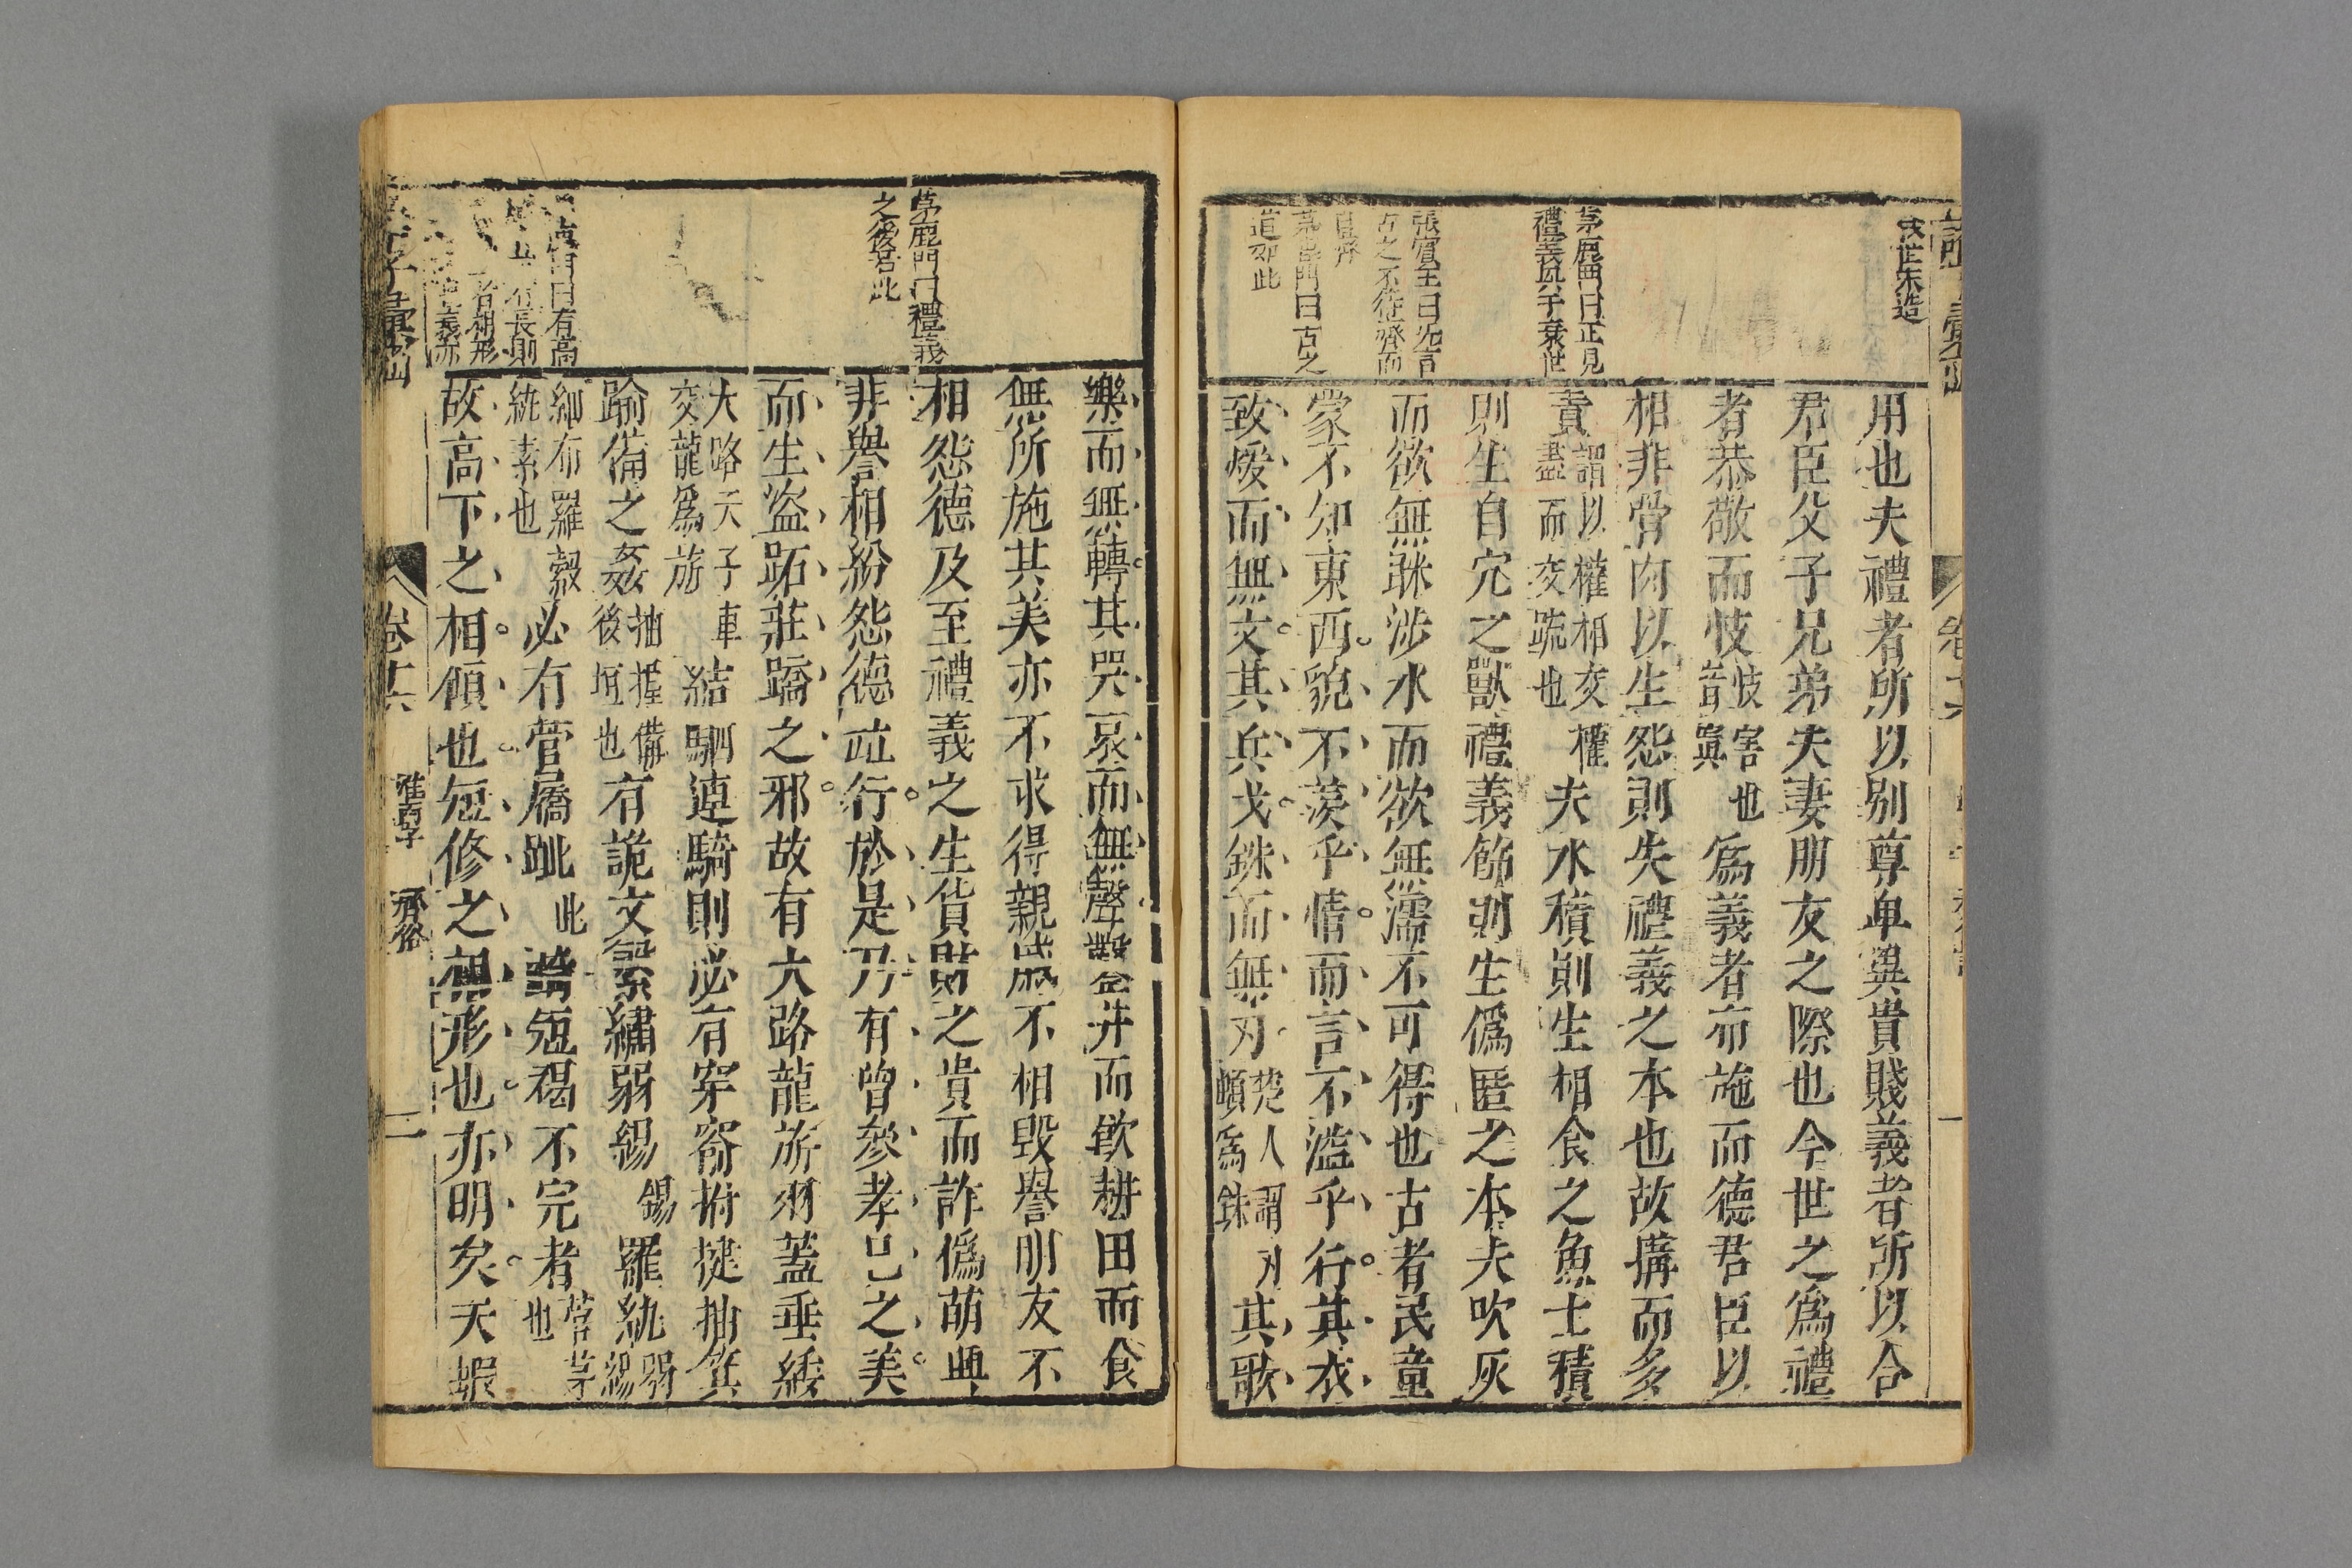 用也夫禮者所以别尊卑異貴賤義者所以合
君臣父子兄弟夫妻朋友之際也今世之爲禮
者恭敬而忮忮害也爲義者布施而德君臣以
相非骨肉以生怨則失禮義之本也故搆而多
責謂以權相交權盡而交疏也夫水積則生相食之魚土積
則生自穴之獸禮義飾則生僞匿之本夫吹灰
而欲無眯涉水而欲無濡不可得也古者民童
蒙不知東西貌不羨乎情而言不溢乎行其衣
致煖而無文其兵戈銖而無刃楚人謂刃頓爲銖其歌
茅鹿門曰正見
禮義興于衰世
張賓王曰先言
古之不從齊而
茅鹿門曰古之
道如此
樂而無轉其哭哀而無聲鑿井而飲耕田而食
無所施其美亦不求得親戚不相毀譽朋友不
相怨德及至禮義之生貨財之貴而詐僞萌興
非譽相紛怨德竝行於是乃有曾參孝己之美
而生盜跖莊蹻之邪故有大路龍旂羽蓋垂緌
大路天子車交龍爲旂結駟連騎則必有穿窬拊揵抽箕
踰備之姦抽握備後垣也有詭文繁繡弱緆錫羅紈弱緆
細布羅縠紈素也必有菅屩跐此踦短褐不完者菅茅也
故高下之相傾也短修之相形也亦明矣夫蝦
茅鹿門曰禮義
之後若此
曰有高
有長則
者相形
卷十六
齊俗
二